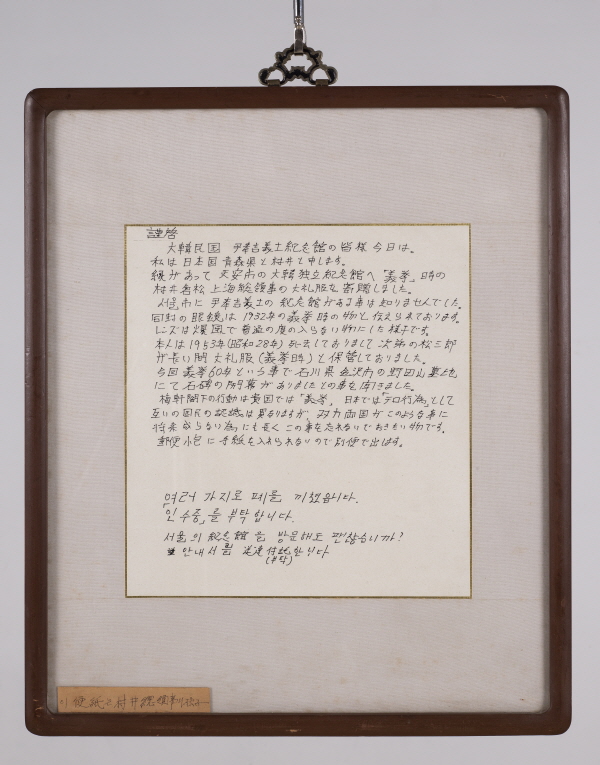 謹啓
大韓民国 尹奉吉義士紀念館の皆様 今日は。
私は日本国青森県と村井と申します。
縁があって 天安市の大韓独立紀念館へ「義挙」時の
村井倉松 上海総領事の大礼服を寄贈しました。
서울市に 尹奉吉義士の 紀念館がある事は知りませんでした。
同封の眼鏡は 1932年の義挙時の物と伝えられております。
レンズは爆風で 度の入らない物にした様子です。
本人は1953年(昭和28年)死去しておりまして 次弟の松三郎
が長い間 大礼服(義挙時)と保管しておりました。
今回 義挙60年という事で 石川県金沢市の野田山墓地
にて 石碑の除幕がありましたとの事を聞きました。
梅軒閣下の行動は貴国では「義挙」日本では「テロ行為」として
互いの国民の認識は異なりますが、双方両国がこのような事に
将来成らない為にも 長くこの事を忘れないでおきたい物です。
郵便小包に手紙を入れられないので別便で出します。
여러 가지로 폐를 끼쳤읍니다.
「인수증」을 부탁합니다.
서울의 紀念館을 방문해도 괜찮습니까?
안내서를 送達付託합니다
(부탁)